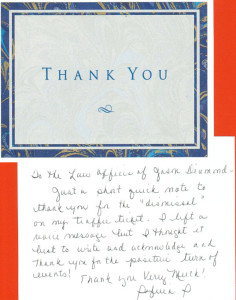 THANK YOU
To the Law offices of Jason Diamond -
Just a short quick note to
thank you for the "dismissal"
on my traffic ticket. I left a
voice message but I thought it
best to write and acknowledge and
thank you for the positive turn of
events! Thank you Very Much!